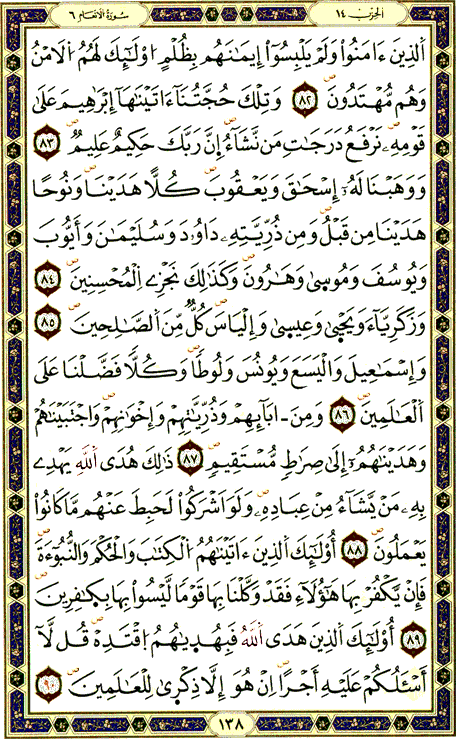 الحِزْبُ ١٤
سُورَةُ الأَنْعَامِ ٦
اَلذِينَ ءَامَنُواْ وَلَمْ يَلْبِسُوٓاْ إِيمَٰنَهُم بِظُلْمٍ اوْلَٰٓئِكَ لَهُمُ اُلَامْنُ
وَهُم مُّهْتَدُونَ ٨٢ وَتِلْكَ حُجَّتُنَآ ءَاتَيْنَٰهَآ إِبْرَٰهِيمَ عَلَىٰ
قَوْمِهِۦ نَرْفَعُ دَرَجَٰتِ مَن نَّشَآءُ إِنَّ رَبَّكَ حَكِيمٌ عَلِيمٌ ٨٣
وَوَهَبْنَا لَهُۥٓ إِسْحَٰقَ وَيَعْقُوبَ كُلّاً هَدَيْنَا وَنُوحاً
هَدَيْنَا مِن قَبْلُ وَمِن ذُرِّيَّتِهِۦ دَاوُۥدَ وَسُلَيْمَٰنَ وَأَيُّوبَ
وَيُوسُفَ وَمُوسىٰ وَهَٰرُونَ وَكَذَٰلِكَ نَجْزِے اِلْمُحْسِنِينَ ٨٤
وَزَكَرِيَّآءَ وَيَحْيىٰ وَعِيسىٰ وَإِلْيَاسَ كُلٌّ مِّنَ اَلصَّٰلِحِينَ ٨٥
وَإِسْمَٰعِيلَ وَالْيَسَعَ وَيُونُسَ وَلُوطاً وَكُلّاً فَضَّلْنَا عَلَى
اَلْعَٰلَمِينَ ٨٦ وَمِنَ ـ ابَآئِهِمْ وَذُرِّيَّٰتِهِمْ وَإِخْوَٰنِهِمْ وَاجْتَبَيْنَٰهُمْ
وَهَدَيْنَٰهُمُۥٓ إِلَىٰ صِرَٰطٍ مُّسْتَقِيمٍ ٨٧ ذَٰلِكَ هُدَى اَللَّهِ يَهْدِے
بِهِۦ مَنْ يَّشَآءُ مِنْ عِبَادِهِۦ وَلَوَ اَشْرَكُواْ لَحَبِطَ عَنْهُم مَّا كَانُواْ
يَعْمَلُونَ ٨٨ أُوْلَٰٓئِكَ اَلذِينَ ءَاتَيْنَٰهُمُ اُلْكِتَٰبَ وَالْحُكْمَ وَالنُّبُوٓءَةَ
فَإِنْ يَّكْفُرْ بِهَا هَٰٓؤُلَآءِ فَقَدْ وَكَّلْنَا بِهَا قَوْماً لَّيْسُواْ بِهَا بِكَٰفِرِينَ
٨٩ أُوْلَٰٓئِكَ اَلذِينَ هَدَى اَللَّهُ فَبِهُدَيٰهُمُ اُقْتَدِهْ قُل لَّآ
أَسْـَٔلُكُمْ عَلَيْهِ أَجْراً اِنْ هُوَ إِلَّا ذِكْرىٰ لِلْعَٰلَمِينَ ٩٠
١٣٨